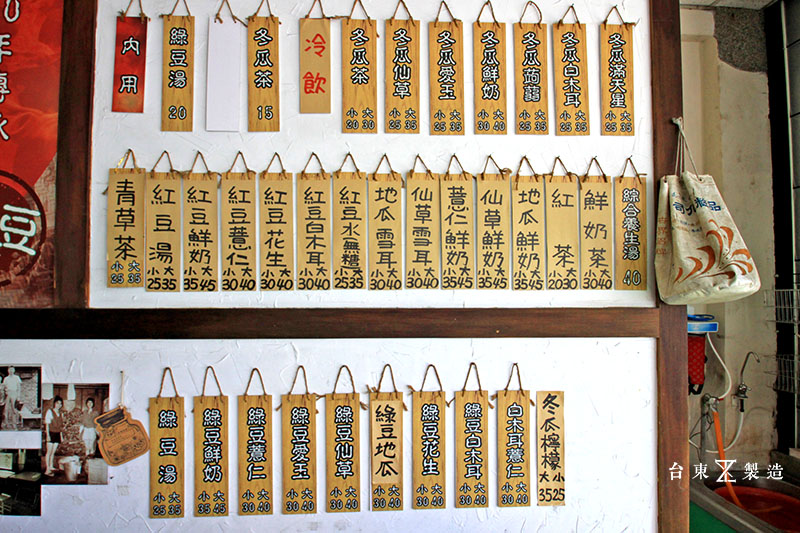 內用
綠豆湯 20
冬瓜茶 15
冷飲
冬瓜茶 小20 大30
冬瓜仙草 小25 大35
冬瓜愛玉 小25 大35
冬瓜鮮奶 小30 大40
冬瓜蒟蒻 小25 大35
冬瓜白木耳 小25 大35
冬瓜滿天星 小25 大35
青草茶 小25 大35
紅豆湯 小25 大35
紅豆鮮奶 小35 大45
紅豆薏仁 小30 大40
紅豆花生 小30 大40
紅豆白木耳 小30 大40
紅豆水無糖 小25 大35
地瓜雪耳 小30 大40
仙草雪耳 小30 大40
薏仁鮮奶 小35 大45
仙草鮮奶 小35 大45
地瓜鮮奶 小35 大45
紅茶 小20 大30
鮮奶茶 小30 大40
綜合養生湯 40
綠豆湯 小25 大35
綠豆鮮奶 小35 大45
綠豆薏仁 小30 大40
綠豆愛玉 小30 大40
綠豆仙草 小30 大40
綠豆地瓜 小30 大40
綠豆花生 小30 大40
綠豆白木耳 小30 大40
白木耳薏仁 小30 大40
冬瓜檸檬 大35 小25
台東製造